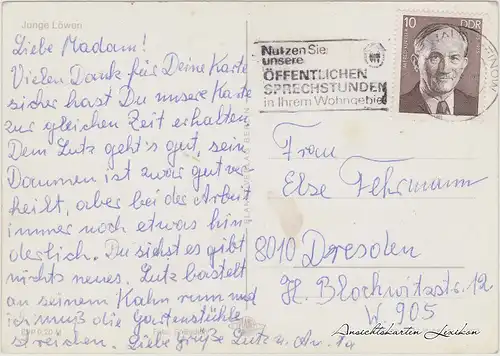 Junge Löwen
Liebe Madam!
Vielen Dank für Deine Karte
sicher hast Du unsere Karte
zur gleichen Zeit erhalten.
Dem Lutz geht's gut, sein
Daumen ist zwar gut ver-
heilt, aber bei der Arbeit
immer noch etwas hin
derlich. Du siehst es gibt
nichts neues. Lutz bastelt
an seinem Kahn rum und
ich muß die Gartenstühle
streichen. Liebe Grüße Lutz u.
Nutzen Sie
unsere
ÖFFENTLICHEN
SPRECHSTUNDEN
in Ihrem Wohngebiet!
10 DDR
Frau
Else Fehrmann
8010 Dresden
H. Blochwitzstr. 12
W. 905
Ansichtskarten Lexikon